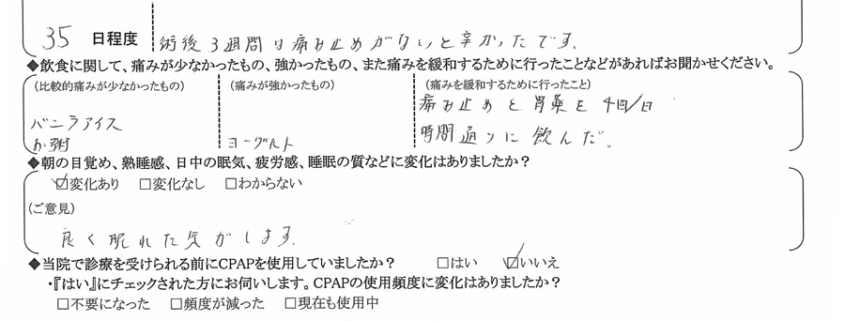 35 日程度 術後3週間は痛み止めがないと辛かったです。
◆飲食に関して、痛みが少なかったもの、強かったもの、また痛みを緩和するために行ったことなどがあればお聞かせください。
(比較的痛みが少なかったもの) (痛みが強かったもの) (痛みを緩和するために行ったこと)
痛み止めと胃薬を4回/日
バニラアイス
時間通りに飲んだ。
お粥 ヨーグルト
◆朝の目覚め、熟睡感、日中の眠気、疲労感、睡眠の質などに変化はありましたか?
☑変化あり □変化なし □わからない
(ご意見)
良く眠れた気がします。
◆当院で診療を受けられる前にCPAPを使用していましたか? □はい ☑いいえ
・『はい』にチェックされた方にお伺いします。CPAPの使用頻度に変化はありましたか?
□不要になった □頻度が減った □現在も使用中